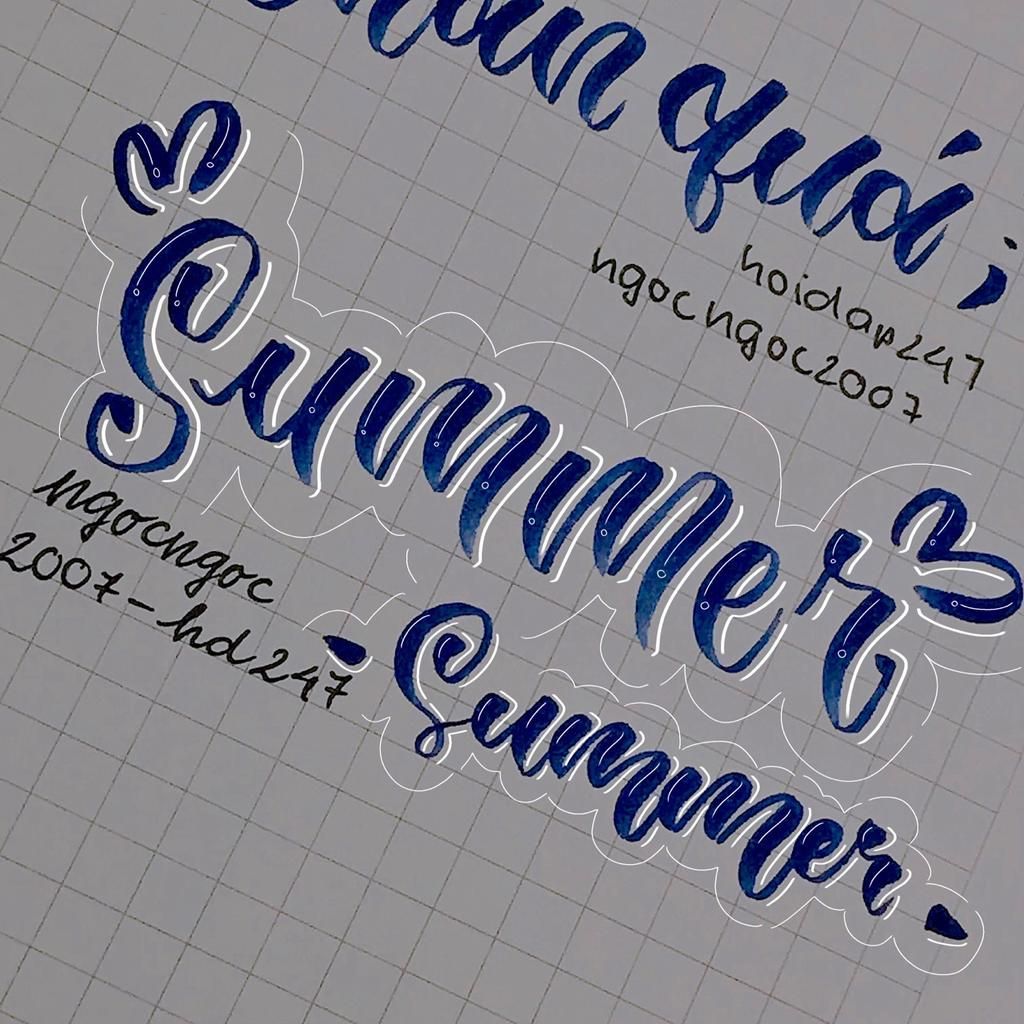 quá;
hoidap247
ngocngoc2007
Summer
ngocngoc
2007-hd247
Summer